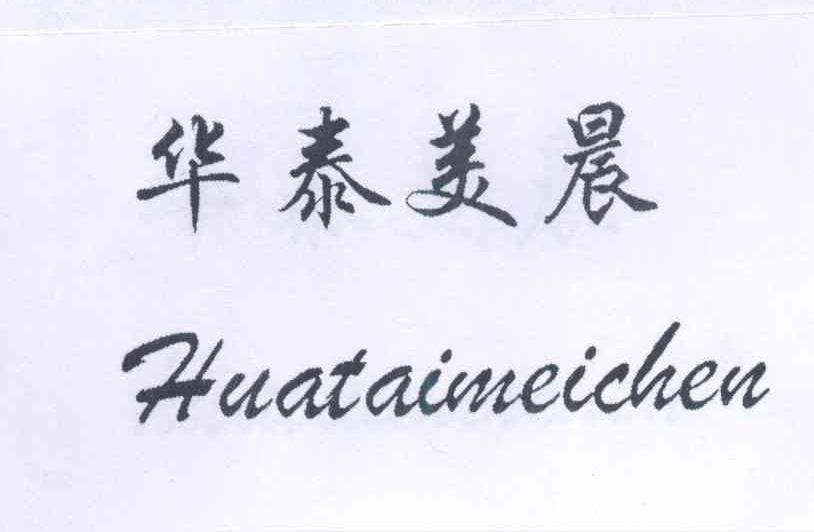 华泰美晨
Huataimeichen